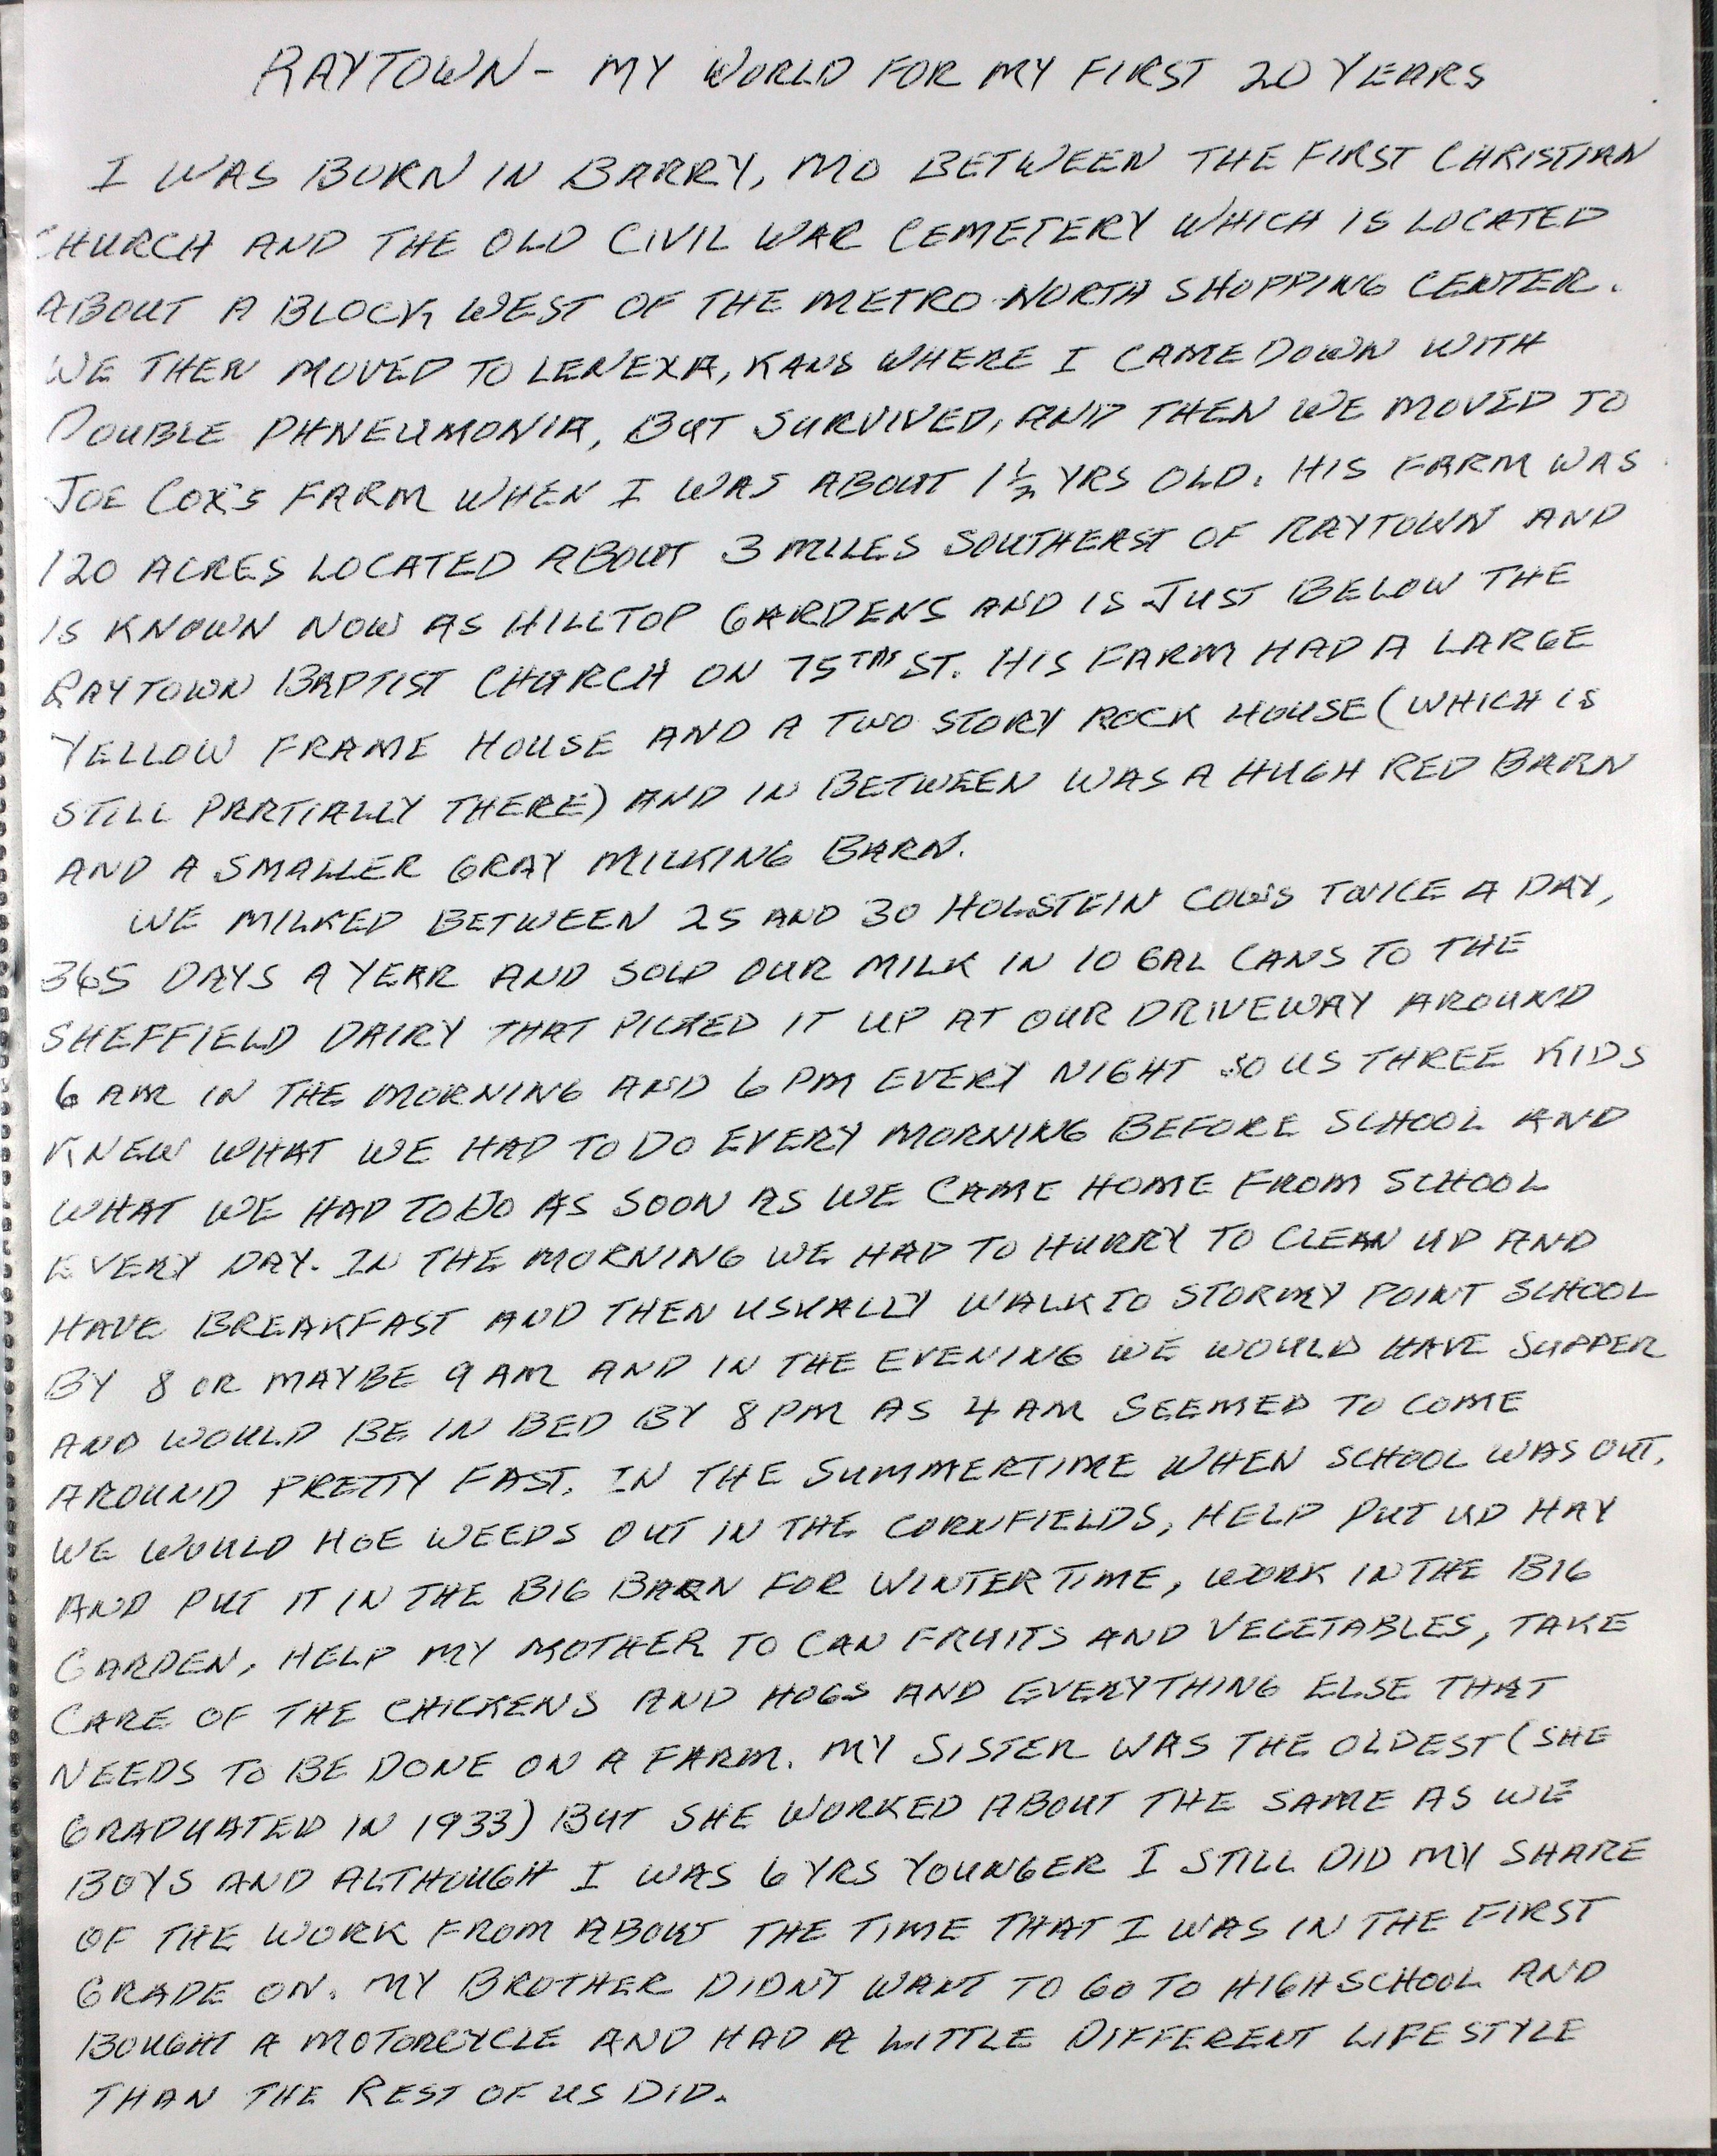 RAYTOWN - MY WORLD FOR MY FIRST 20 YEARS
I WAS BORN IN BARRY, MO BETWEEN THE FIRST CHRISTIAN
CHURCH AND THE OLD CIVIL WAR CEMETERY WHICH IS LOCATED
ABOUT A BLOCK WEST OF THE METRO NORTH SHOPPING CENTER.
WE THEN MOVED TO LENEXA, KANS WHERE I CAME DOWN WITH
DOUBLE PHNEUMONIA, BUT SURVIVED, AND THEN WE MOVED TO
JOE COX'S FARM WHEN I WAS ABOUT 1 1/2 YRS OLD. HIS FARM WAS
120 ACRES LOCATED ABOUT 3 MILES SOUTHEAST OF RAYTOWN AND
IS KNOWN NOW AS HILLTOP GARDENS AND IS JUST BELOW THE
RAYTOWN BAPTIST CHURCH ON 75TH ST. HIS FARM HAD A LARGE
YELLOW FRAME HOUSE AND A TWO STORY ROCK HOUSE (WHICH IS
STILL PARTIALLY THERE) AND IN BETWEEN WAS A HUGH RED BARN
AND A SMALLER GRAY MILKING BARN.
WE MILKED BETWEEN 25 AND 30 HOLSTEIN COWS TWICE A DAY,
365 DAYS A YEAR AND SOLD OUR MILK IN 10 GAL CANS TO THE
SHEFFIELD DAIRY THAT PICKED IT UP AT OUR DRIVEWAY AROUND
6 AM IN THE MORNING AND 6 PM EVERY NIGHT SO US THREE KIDS
KNEW WHAT WE HAD TO DO EVERY MORNING BEFORE SCHOOL AND
WHAT WE HAD TO DO AS SOON AS WE CAME HOME FROM SCHOOL
EVERY DAY. IN THE MORNING WE HAD TO HURRY TO CLEAN UP AND
HAVE BREAKFAST AND THEN USUALLY WALK TO STORMY POINT SCHOOL
BY 8 OR MAYBE 9 AM AND IN THE EVENING WE WOULD HAVE SUPPER
AND WOULD BE IN BED BY 8 PM AS 4 AM SEEMED TO COME
AROUND PRETTY FAST. IN THE SUMMERTIME WHEN SCHOOL WAS OUT,
WE WOULD HOE WEEDS OUT IN THE CORNFIELDS, HELP PUT UP HAY
AND PUT IT IN THE BIG BARN FOR WINTER TIME, WORK IN THE BIG
GARDEN, HELP MY MOTHER TO CAN FRUITS AND VEGETABLES, TAKE
CARE OF THE CHICKENS AND HOGS AND EVERYTHING ELSE THAT
NEEDS TO BE DONE ON A FARM. MY SISTER WAS THE OLDEST (SHE
GRADUATED IN 1933) BUT SHE WORKED ABOUT THE SAME AS WE
BOYS AND ALTHOUGH I WAS 6 YRS YOUNGER I STILL DID MY SHARE
OF THE WORK FROM ABOUT THE TIME THAT I WAS IN THE FIRST
GRADE ON. MY BROTHER DIDNT WANT TO GO TO HIGHSCHOOL AND
BOUGHT A MOTORCYCLE AND HAD A LITTLE DIFFERENT LIFESTYLE
THAN THE REST OF US DID.